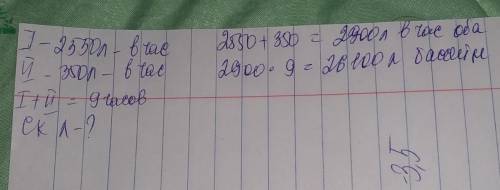 I - 2550л - в час
II - 350л - в час
I + II = 9 часов
ск л - ?
2550 + 350 = 2900л в час оба
2900 · 9 = 26100 л бассейн
3,5